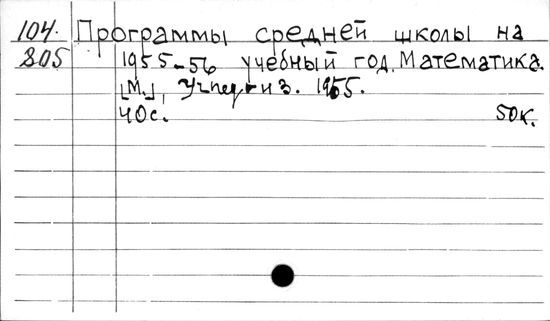 104. Программы средней школы на
805 1955-56 учебный год. Математика.
[М.], Учпедгиз. 1955.
40с. 50к.